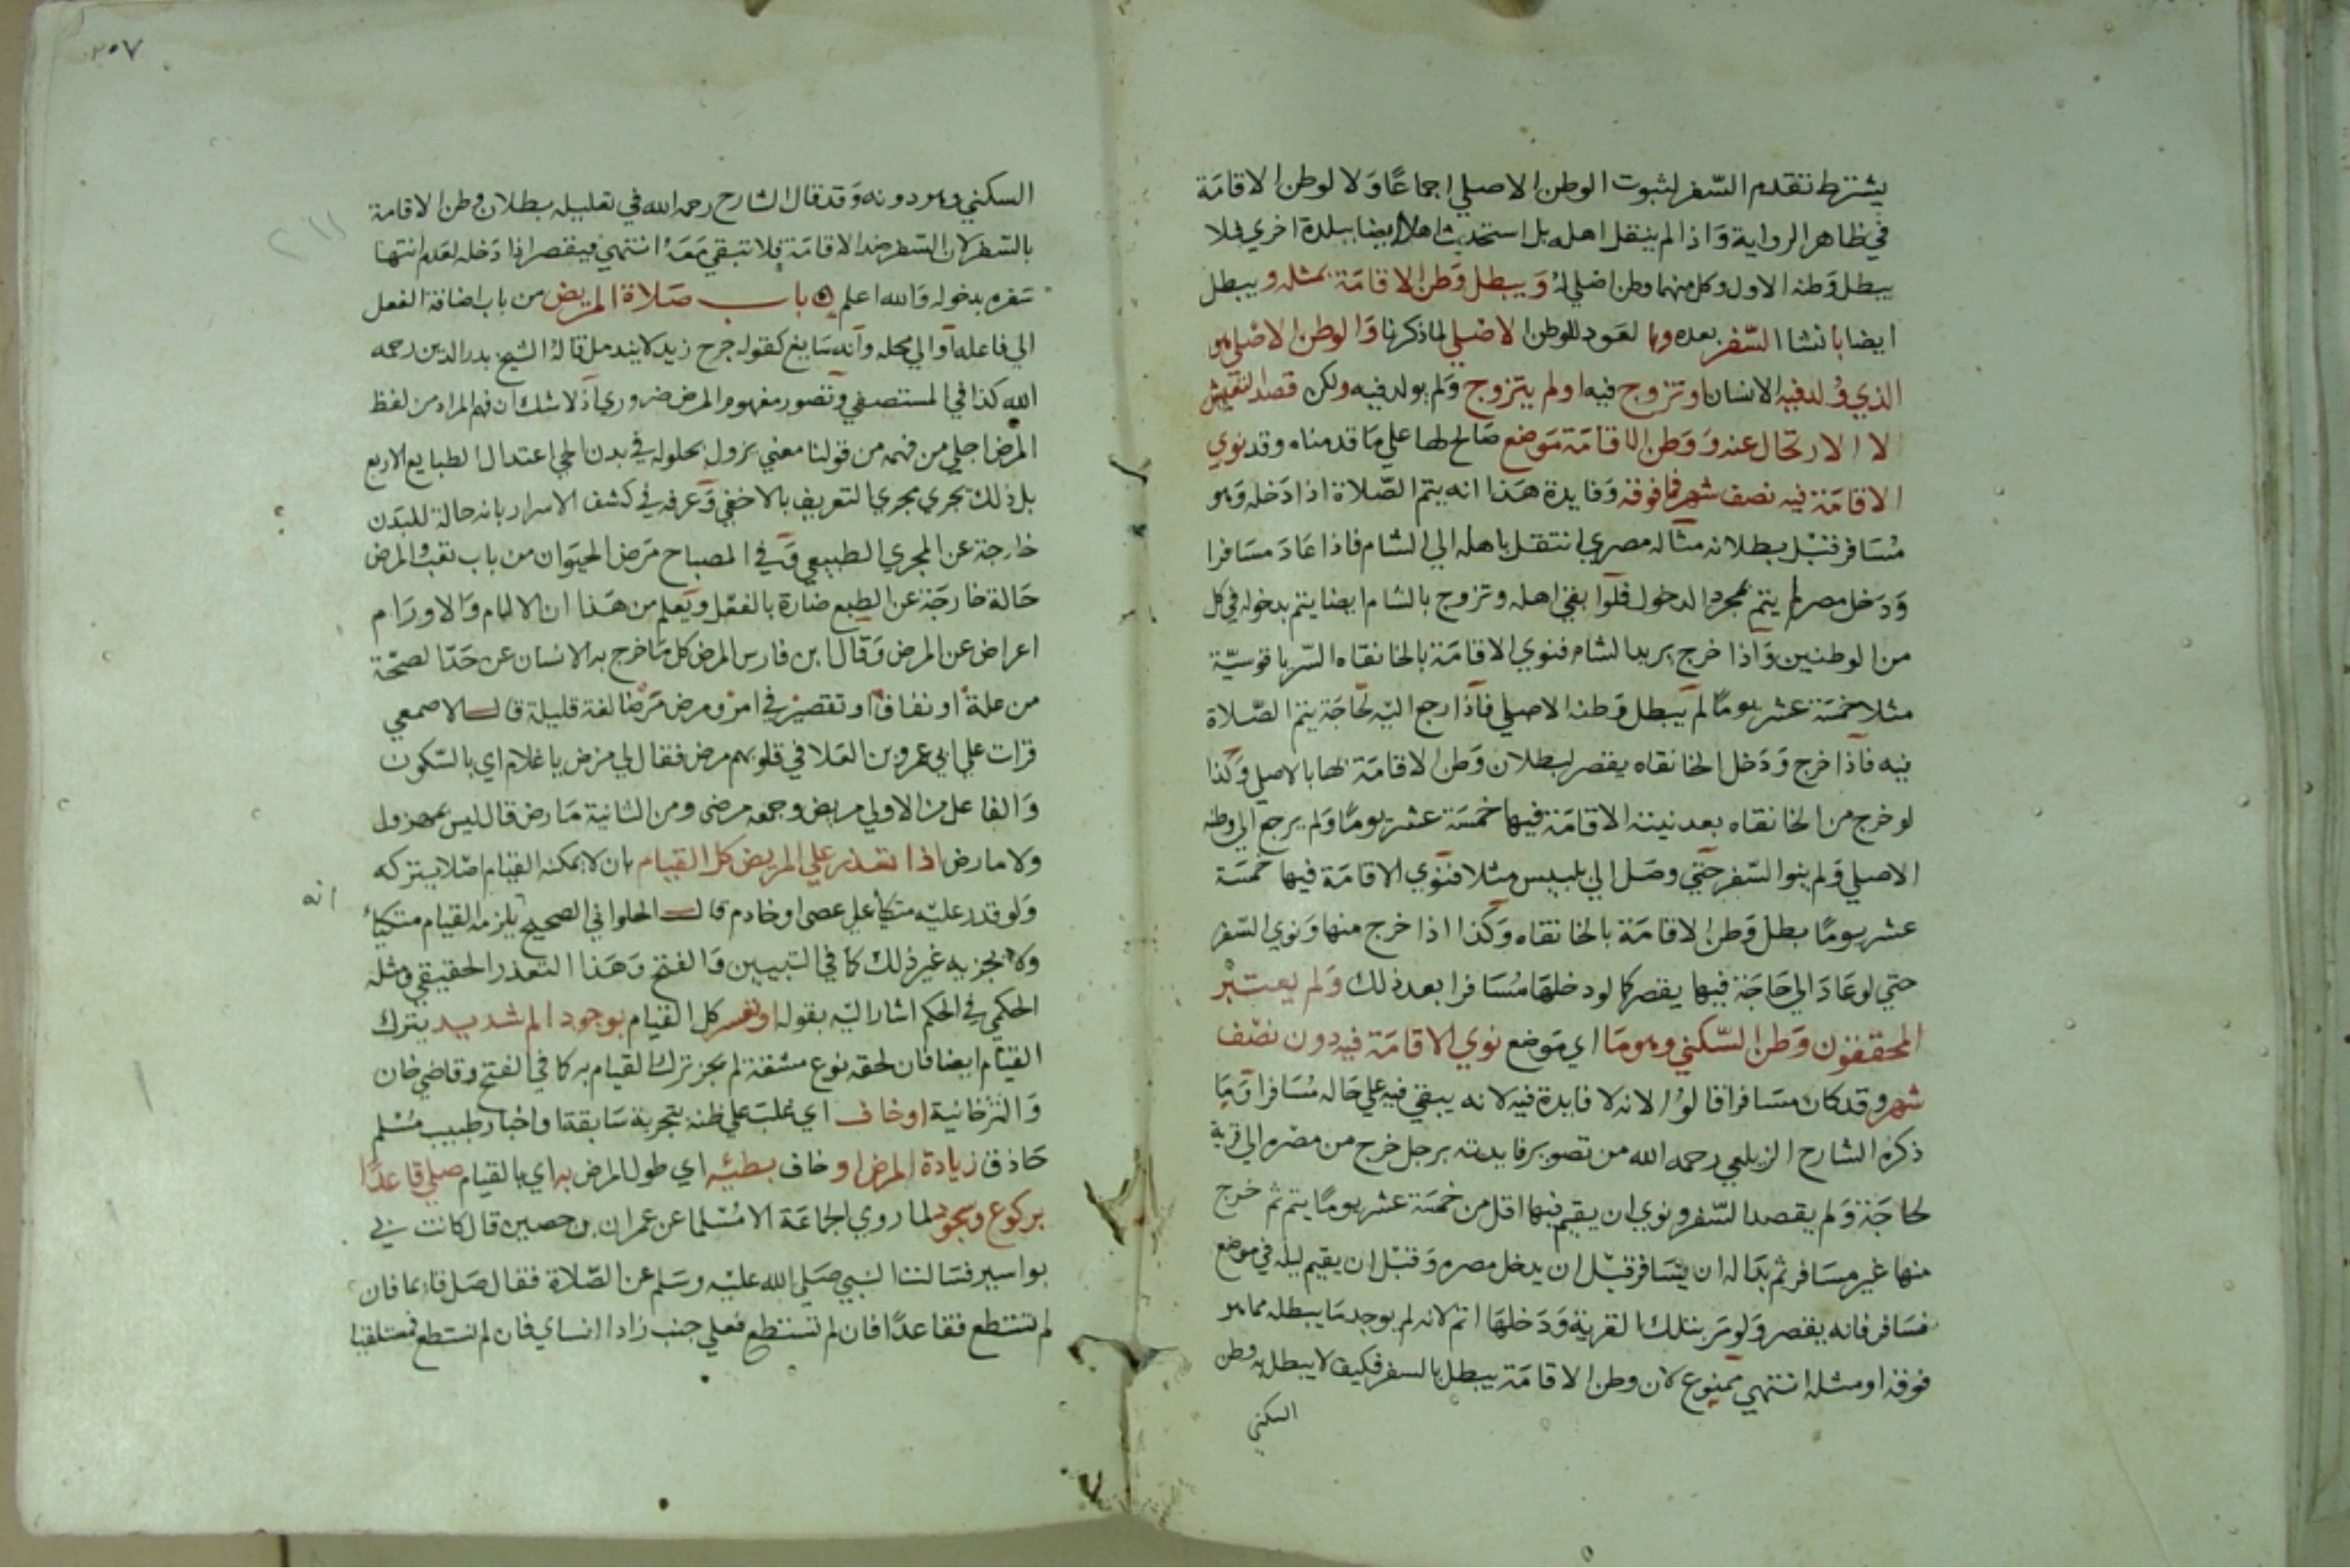 يشترط تقدم السّفر لثبوت الوطن الاصلي اجماعًا وَلا لوطن الاقامَة
في ظاهر الرواية وَاذا لم ينقل اهله بل استحدث اهلا ايضا ببلدة اخري فلا
يبطل وَطنه الاول وكل منهما وطن اصلي لهُ وَيبطل وَطن الاقامَة بمثله ويبطل
ايضا بانشا السّفر بعده وبا لعَود للوطن الاصْلي لما ذكرنا وَالوطن الاصْلي هو
الذي وُلد فيه الانسان او تزوج فيه او لم يتزوج وَلم يولد فيه ولكن قصد التعيش
لا الارتحال عنه وَوَطن الاقامَة مَوضع صَالح لها علي مَا قدمناه وقد نوي
الاقامَة فيه نصف شهر فما فوقه وَفايدة هَذا انه يتم الصّلاة اذا دَخله وَهو
مُسَافر قبْل بطلانه مثاله مصري انتقل باهله الي الشام فاذا عَادَ مسَافرا
وَدَخل مصر لم يتم بمجرد الدخول فلو ابقي اهله وتزوج بالشام ايضا يتم بدخوله في كل
من الوطنين وَاذا خرج يريد الشام فنوي الاقامَة بالخانقاه السّرياقوسيّة
مثلا خمسَة عشر يومًا لم يبطل وَطنه الاصلي فاذا رجع اليْه لحاجَة يتم الصّلاة
فيه فاذا خرج وَدَخل الخانقاه يقصر لبطلان وَطن الاقامَة بها بالاصلي وَكذا
لو خرج من الخانقاه بعد نيته الاقامَة فيها خمسَة عشر يومًا وَلم يرجع الي وطنه
الاصلي وَلم ينوا السّفر حتي وصَل الي بلبيس مثلا فنوي الاقامَة فيها خمسَة
عشر يومًا بطل وَطن الاقامَة بالخانقاه وَكذا اذا خرج منها وَنوي السّفر
حتي لو عَادَ الي حَاجَة فيها يقصر كما لو دخلهَا مُسَافرا بعد ذلك وَلم يعتبْر
المحققون وَطن السّكني وهو مَا اي مَوضع نوي الاقامَة فيه دون نصْف
شهر وقد كان مسَافرا قالوُا لانه لا فايدة فيه لانه يبقي فيه علي حَاله مُسَافرا وَمَا
ذكرهُ الشارح الزيلعي رحمه الله من تصوير فايدته برجل خرج من مصْره الي قرية
لحاجَة وَلم يقصد السّفر ونوي ان يقيم فيها اقل من خمسَة عشر يومًا يتم ثم خرج
منها غير مسَافر ثم بدَا له ان يسَافر قبْل ان يدخل مصره وَقبْل ان يقيم ليلة في موضع
فسَافر فانه يقصر وَلو مَر بتلك القرية وَدَخلهَا اتم لانه لم يوجد مَا يبطله مما هو
فوقه او مثله انتهي ممنوع لان وطن الاقامَة يبطل بالسفر فكيف لا يبطل به وطن
السكني
٢٥٧
السكني وهو دونه وَقد قال الشارح رحمه الله في تعليله بطلان وطن الاقامة
بالسّفر لان السّفر ضد الاقامَة فلا تبقي مَعَهُ انتهي فيقصر اذا دَخله لعَدم انتها
سَفره بدخوله وَالله اعلم باب صَلاة المريض من باب اضافة الفعل
الي فاعله او الي محله وانه سَايغ كقوله جرح زيد لا يندمل قالهُ الشيخ بدر الدين رحمه
الله كذا في المستصفي وَتصور مفهوم المرض ضروري اذ لا شك ان فهم المراد من لفظ
المرض اجلي من فهمه من قولنا معني يزول بحلوله في بدن الحي اعتدال الطبايع الاربع
بل ذلك يجري مجري التعريف بالاخفي وَعرفه في كشف الاسرار بانه حالة للبَدن
خارجة عن المجري الطبيعي وَفي المصباح مَرض الحيَوان من باب تعبُ المرض
حَالة خارجَة عن الطبع ضارة بالفعْل ويَعلم من هَذا ان الالام وَالاورَام
اعراض عن المرض وَقال ابن فارس المرض كل مَا خرج به الانسان عن حَدّ الصحّة
من علةٍ او نفاقٍ او تقصيْر في امرْ ومرض مَرْضا لغة قليلة قال الاصمعي
قرات علي ابي عمرو بن العَلا في قلوبهم مرض فقال لي مرْض يا غلام اي بالسّكون
وَالفاعل من الاولي مريض وجمعه مرضى ومن الثانية مَارض قال ليس بمهزول
ولا مارض اذا تعَذر علي المريض كل القيام بان لا يمكنه القيَام اصْلا يتركه
وَلو قدر عليْه متكأ علي عصى او خادم قال الحلواني الصحيح انه يلزمه القيام متكيا
ولا يجزيه غير ذلك كما في التبيين وَالفتح وَهَذا التعذر الحقيقي ومثله
الحكمي في الحكم اشار اليْه بقوله او تعسر كل القيَام بوجود الم شديد يترك
القيام ايضا فان لحقه نوع مشقة لم يجز ترك القيام به كما في الفتح وقاضي خان
وَالتترخانية او خاف اي غلبَ علي ظنه بتجربة سَابقة او اخبار طبيب مُسْلم
حَاذق زيادة المرض او خاف بطئه اي طول المرض به اي بالقيام صلي قاعدًا
بركوع وسجود لما روي الجماعَة الا مُسْلما عن عمران بن حصين قال كانت بي
بواسير فسَالت النبي صَلي الله عليْه وسَلم عن الصّلاة فقال صَل قايما فان
لم تستطع فقاعدًا فان لم تستطع فعلي جنب زاد النساي فان لم تستطع فمستلقيا